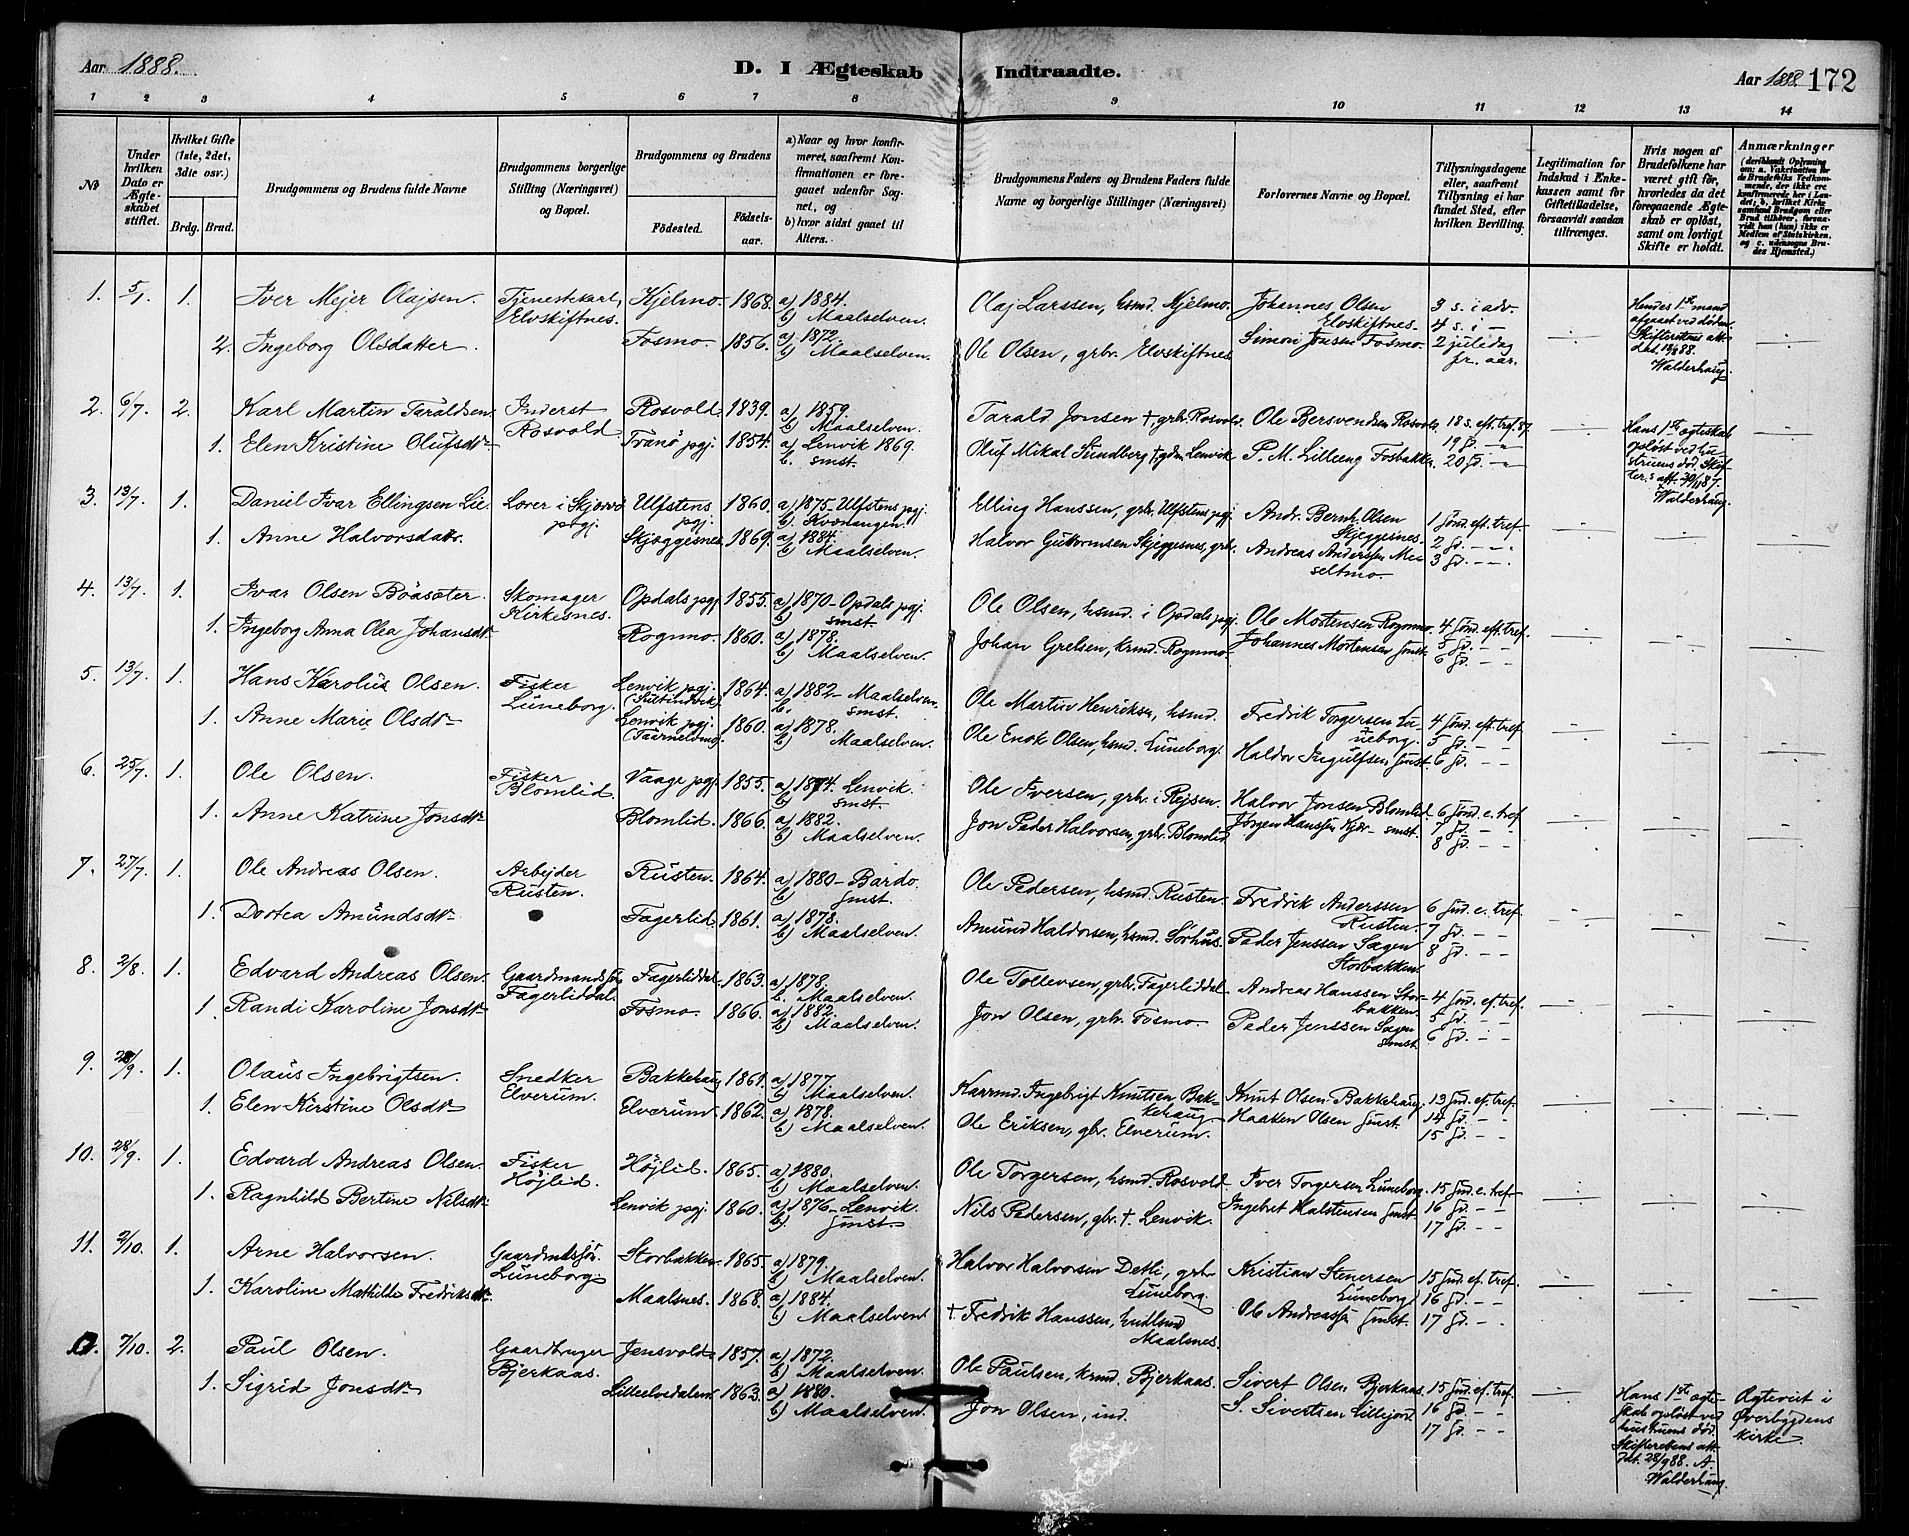 Aar 1888.
D. I Ægteskab Indtraadte.
Aar 1888. 172
1 2 3 4 5 6 7 8 9 10 11 12 13 14
No
Under hvilken Dato er Ægteskabet stiftet.
Hvilket Gifte (1ste, 2det, 3die osv.)
Brdg. Brud.
Brudgommens og Brudens fulde Navne
Brudgommens borgerlige Stilling (Næringsvei) og Bopæl.
Brudgommens og Brudens
Fødested.
Fødsels-aar.
a) Naar og hvor konfirmeret, saafremt Konfirmationen er foregaaet udenfor Sognet, og
b) hvor sidst gaaet til Alters.
Brudgommens Faders og Brudens Faders fulde Navne og borgerlige Stillinger (Næringsvei)
Forlovernes Navne og Bopæl.
Tillysningsdagene eller, saafremt Tillysning ei har fundet Sted, efter hvilken Bevilling.
Legitimation for Indskud i Enkekassen samt for Giftetilladelse, forsaavidt saadan tiltrænges.
Hvis nogen af Brudefolkene har været gift før, hvorledes da det foregaaende Ægteskab er opløst, samt om lovligt Skifte er holdt.
Anmærkninger
(deriblandt Oplysning om: a. Vaccination for de Brudefolks Vedkommende, der ikke ere konfirmerede her i Landet; b. hvilket Kirkesamfund Brudgom eller Brud tilhører, forsaavidt han (hun) ikke er Medlem af Statskirken, og c. udensogns Brudes Hjemsted.)
1. 5/1. 1. Iver Mejer Olajsen. Tjenestekarl, Elvskiftnes. Hjelmo. 1868. a) 1884. b) Maalselven. Olaj Larssen, hsmd. Hjelmo. Johannes Olsen Elvskiftnes. 3 s. i adv.
4 s. i –
2. Ingeborg Olsdatter. Fosmo. 1856. a) 1872. b) Maalselven. Ole Olsen, grbr. Elvskiftnes Simon Jensen Fosmo. 2 juledag fr. aar.
Hendes 1ste mand afgaaet ved døden. Skifterettens att. Walderhaug.
2. 6/7. 2. Karl Martin Taraldsen Inderst Rosvold Rosvold. 1839. a) 1859. b) Maalselven. Tarald Jonsen †, grbr. Rosvold. Ole Bersvendsen Rosvold. 18 s. eft. tref. 87.
1. Elen Kristine Olufsdtr Tranø pgj. 1854. a) Lenvik 1869. b. smst. Oluf Mikal Sundberg †, gdm. Lenvik P. M. Lilleeng Fosbakken. 19 Sd. – "
20 Sd. – "
Hans 1ste egteskab opløst ved hustruens død. Walderhaug.
3. 13/7. 1. Daniel Ivar Ellingsen Lie Lærer i Skjervø pgj. Ulfstens pgj. 1860. a) 1875 – Ulfstens pgj. b. Kvænangen. Elling Hanssen, grbr. Ulfstens pgj. Andr. Bernh. Olsen Skjeggesnes. 1 Sønd. eft. tref
1. Anne Halvorsdatr. Skjeggesnes. 1869. a) 1884. b) Maalselven. Halvor Guttormsen Skjeggesnes, grbr. Andreas Andersen Meseltmo. 2 Sd. – –
3 Sd. – –
4. 13/7. 1. Ivar Olsen Bøasæter. Skomager Kirkesnes. Opdals pgj. 1855. a) 1870 – Opdals pgj. b) smst. Ole Olsen, hsmd. i Opdals pgj. Ole Mortensen Rognmo. 4 Sønd. eft. tref.
1. Ingeborg Anna Olea Johansdtr Rognmo. 1860. a) 1878. b) Maalselven. Johan Grelsen, krmd. Rognmo. Johannes Mortensen Smst. 5 Sd. – –
6 Sd. – –
5. 13/7. 1. Hans Karolius Olsen. Fisker Luneborg. Lenvik pgj. 1864. a) 1882 – Maalselven. b. smst. Ole Martin Henriksen, hsmd. Fredrik Torgersen Luneborg. 4 Sønd. eft. tref
1. Anne Marie Olsdtr Lenvik pgj. 1860. a) 1878. b) Maalselven. Ole Enok Olsen, hsmd. Luneborg. Haldor Ingulfsen Smst. 5 Sd. – –
6 Sd. – –
6. 25/7. 1. Ole Olsen. Fisker Blomlid. Vaage pgj. 1855. a) 1874. Lenvik. b) smst. Ole Iversen, grbr. i Rejsen. Halvor Jonsen Blomlid 6 Sønd. e. tref
1. Anne Katrine Jonsdtr Blomlid. 1866. a) 1882. b) Maalselven. Jon Peder Halvorsen, grbr. Blomlid. Jørgen Hanssen Kjær – smst. 7 Sd. – –
8 Sd. – –
7. 27/7. 1. Ole Andreas Olsen. Arbejder Rusten. Rusten. 1864. a) 1880 – Bardo. b) Smst. Ole Pedersen, hsmd. Rusten. Fredrik Anderssen Rusten. 6 Snd. e. tref.
1. Dortea Amundsdtr Fagerlid. 1861. a) 1878. b) Maalselven. Amund Haldorsen, hsmd. Sorhus. Peder Jenssen Sagen Storbakken. 7 Sd. – –
8 Sd. – –
8. 2/8. 1. Edvard Andreas Olsen. Gaardmandssøn Fagerliddal. Fagerliddal. 1863. a) 1878. b. Maalselven. Ole Tollevsen, grbr. Fagerliddal. Andreas Hanssen Storbakken. 4 Sønd. ef. tref.
1. Randi Karoline Jonsdtr Fosmo. 1866. a) 1882. b) Maalselven. Jon Olsen, grbr. Fosmo. Peder Jenssen Sagen Smst. 5 Sd. – –
6 Sd. – –
9. 28/9. 1. Olaus Ingebrigtsen. Snedker Elverum. Bakkehaug 1861. a) 1877. b) Maalselven. Kaarmd. Ingebrigt Knutsen Bakkehaug Knut Olsen Bakkehaug. 13 Snd. ef. tref.
1. Elen Kirstine Olsdtr Elverum. 1862. a) 1878. b) Maalselven. Ole Eriksen, gbr. Elverum. Haaken Olsen Smst. 14 Sd. – –
15 Sd. – –
10. 28/9. 1. Edvard Andreas Olsen. Fisker Højlid. Højlid. 1865. a) 1880. b) Maalselven. Ole Torgersen, hsmd. Rosvold Iver Torgersen Luneborg. 15 Snd. e. tref
1. Ragnhild Bertine Nilsdtr. Lenvik pgj. 1860. a) 1876 – Lenvik. b) Smst. Nils Pedersen, gbr. †. Lenvik. Ingebret Halstensen Smst. 16 Sd. – –
17 Sd. – –
11. 2/10. 1. Arne Halvorsen. Gaardmdssøn. Luneborg Storbakken. 1865. a) 1879. b) Maalselven. Halvor Halvorsen Detli, grbr. Luneborg. Kristian Stenersen Luneborg. 15 Snd. ef. tref.
1. Karoline Mathilde Fredriksdtr. Maalsnes. 1868. a) 1884. b) Maalselven † Fredrik Hanssen, Maalsnes. Ole Andreassen Smst. 16 Sd. – –
17 Sd. – –
7/10. 2. Paul Olsen. Gaardbruger Bjerkaas. Jensvold 1857. a) 1872. b) Maalselven. Ole Paulsen, krmd. Bjerkaas. Sivert Olsen Bjerkaas. 15 Snd. ef. tref.
1. Sigrid Jonsdtr Lilleelvedalen. 1863. a) 1880. b) Maalselven. Jon Olsen, ind. S. Sivertsen Lillejord. 16 Sd. – –
17 Sd. – –
Hans 1ste egteskab opløst ved hustruens død. Skifterettens att. Jdt. 28/9 88. A. Walderhaug.
Egteviet i Øverbygdens kirke.